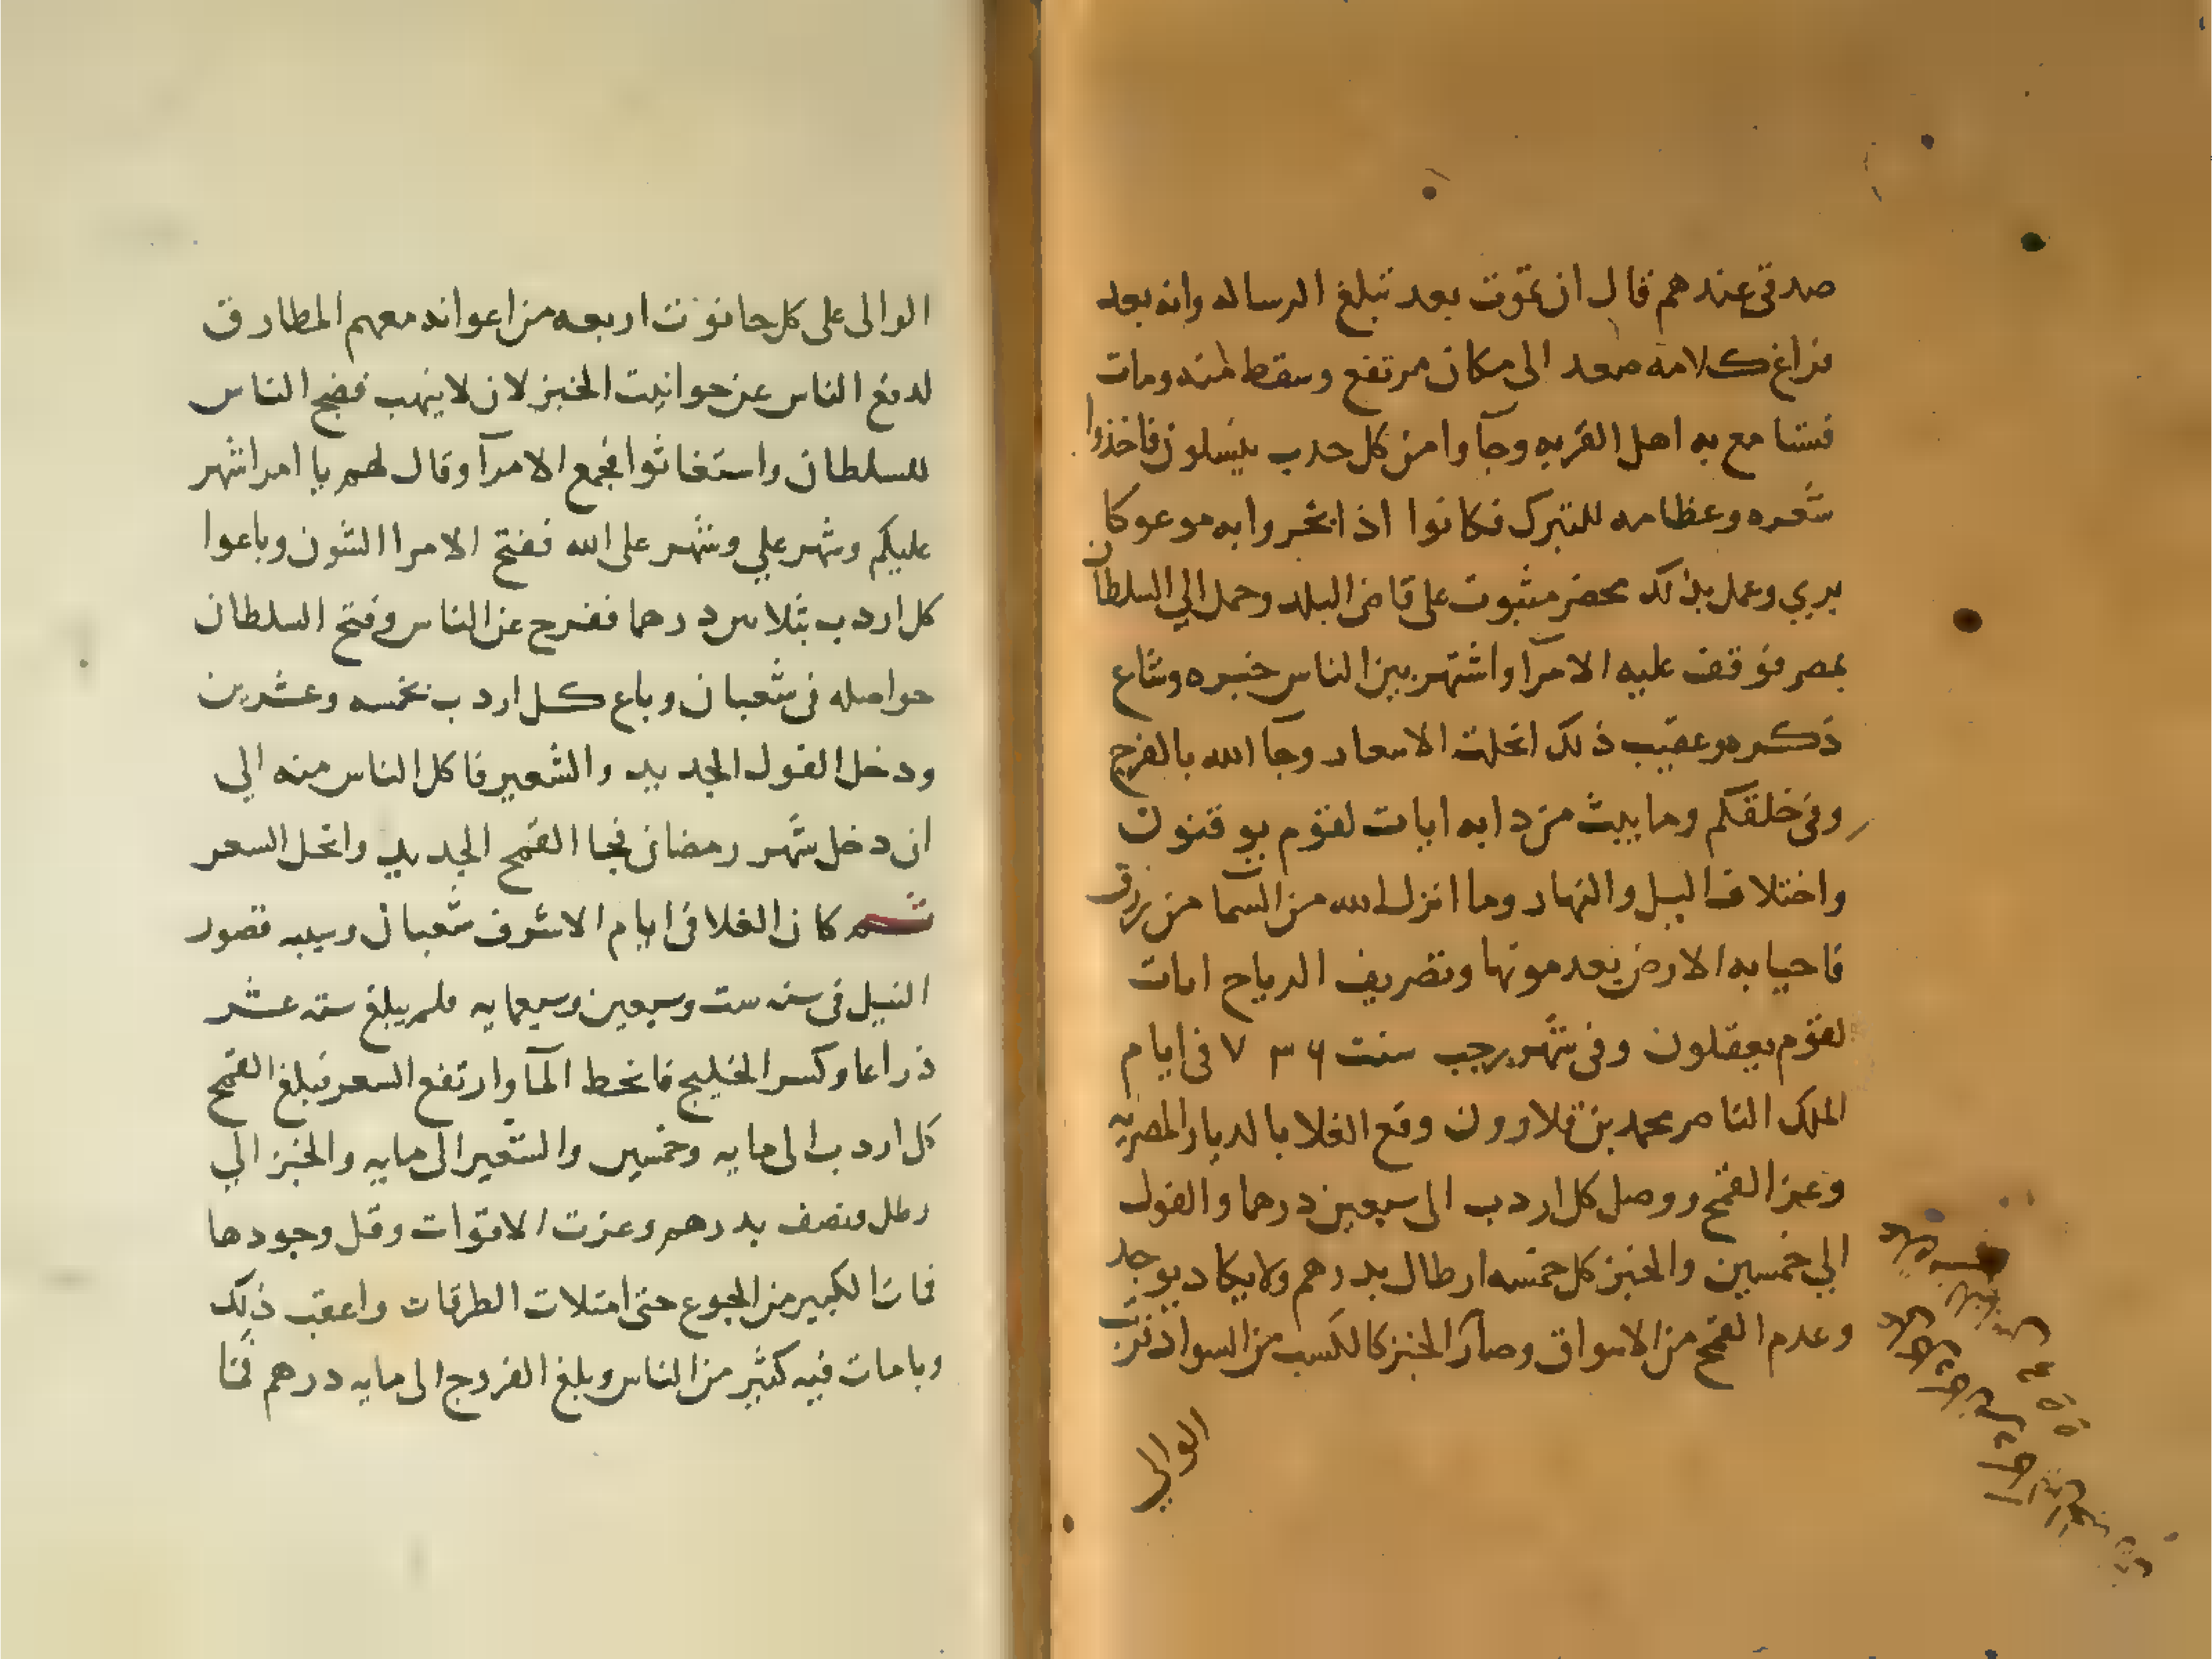 صدقي عندهم قال ان تموت بعد تبلغ الرساله وانه بعد
فراغ كلامه صعد الى مكان مرتفع وسقط منه ومات
فتسامع به اهل القريه وجآوا من كل حدب ينسلون فاخذوا
شعره وعظامه للتبرك فكانوا اذا بخروا به موعوكا
بري وعمل بذلك محضر مثبوت على قاضى البلد وحمل الي السلطان
بمصر فوقف عليه الامرآ واشتهر بين الناس خبره وشاع
ذكره وعقيب ذلك انحلت الاسعار وجآ الله بالفرج
وفى خلقكم وما يبث من دابه ايات لقوم يوقنون
واختلاف اليل والنهار وما انزل الله من السمآ من رزق
فاحيا به الارض بعد موتها وتصريف الرياح ايات
لقوم يعقلون وفى شهر رجب سنت ٧٣٦ فى ايام
الملك الناصر محمد بن قلاوون وقع الغلا بالديار المصريه
وعز القمح ووصل كل اردب الى سبعين درهما والفول
الي خمسين والخبز كل خمسه ارطال بدرهم ولا يكاد يوجد
وعدم القمح من الاسواق وصار الخبز كالكسب من السواد
الوالي
الوالى على كل حانوت اربعه من اعوانه معهم المطارق
لدفع الناس عن حوانيت الخبز لان لا ينهب فضج الناس
للسلطان واستغاثوا فجمع الامرآ وقال لهم يا امرا شهر
عليكم وشهر علي وشهر على الله ففتح الامرا الشون وباعوا
كل اردب بثلاس درهما ففرج عن الناس وفتح السلطان
حواصله فى شعبان وباع كل اردب بخمسه وعشرين
ودخل الفول الجديد والشعير فاكل الناس منه الي
ان دخل شهر رمضان فجا القمح الجديد وانحل السعر
ثم كان الغلا فى ايام الاشرف شعبان وسببه قصور
النيل فى سنه ست وسبعين وسبعمايه فلم يبلغ سته عشر
ذراعا وكسر الخليج فانحط المآ وارتفع السعر فبلغ القمح
كل اردب الى مايه وخمسين والشعير الى مايه والخبز الي
رطل ونصف بدرهم وعزت الاقوات وقل وجودها
فمات الكثير من الجوع حتى امتلات الطرقات واعقب ذلك
وبا مات فيه كثير من الناس وبلغ الفروج الى مايه درهم